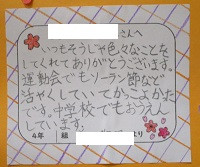 さんへ
いつもそうじや色々なことを
してくれてありがとうございます。
運動会でもソーラン節などで
活やくしていてかっこよかた
です。中学校でもおうえん
しています。
4年 組 より